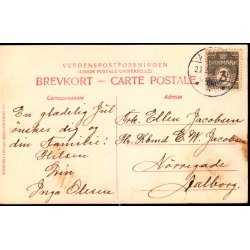 VERDENSPOSTFORENINGEN
(UNION POSTALE UNIVERSELLE)
BREVKORT – CARTE POSTALE
Correspondance
Adresse
DANMARK
3
En glædelig Jul
ønskes dig og
din Familie:
Hilsen
Din
Inga Olesen
Frk. Ellen Jacobsen
Hr. Kbmd E. W. Jacobsen
Nörregade
Aalborg.